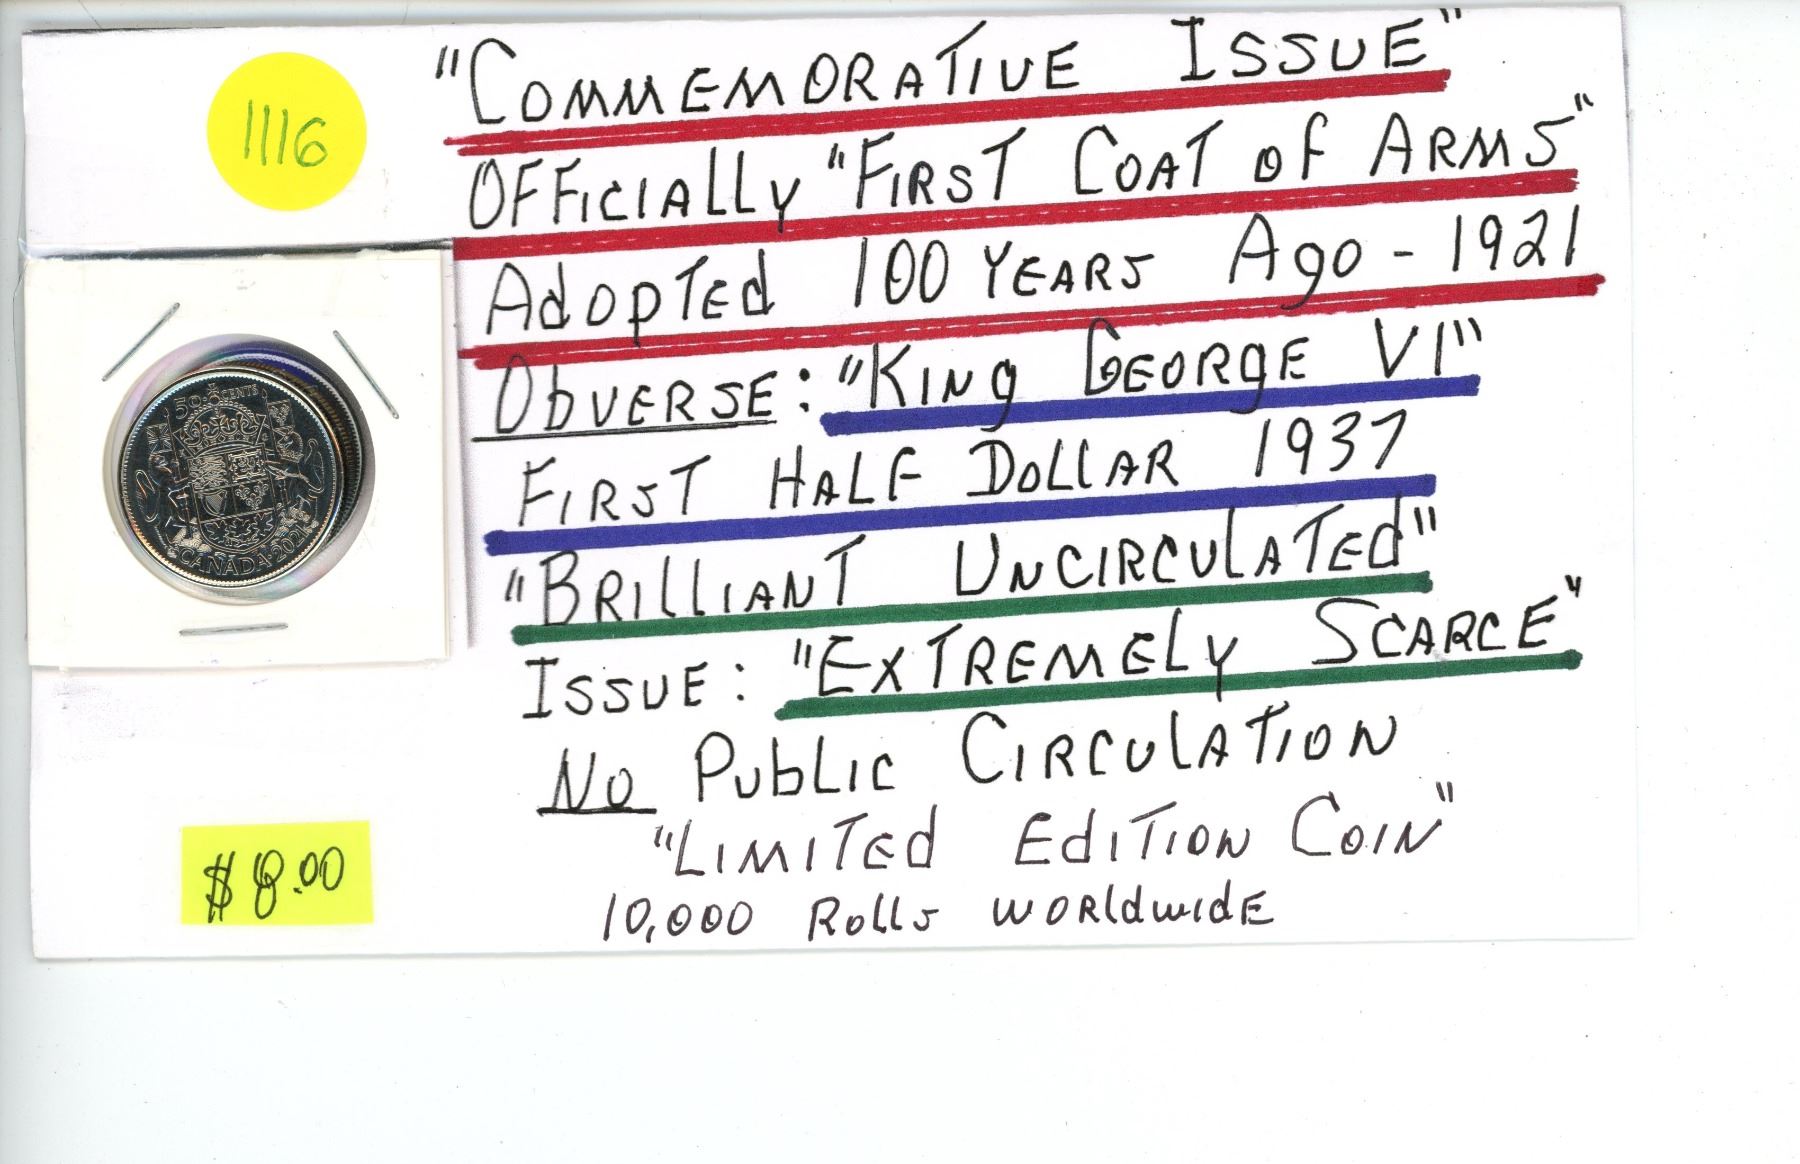 1116
"COMMEMORATIVE ISSUE"
OFFICIALLY "FIRST COAT OF ARMS"
ADOPTED 100 YEARS AGO - 1921
OBVERSE: "KING GEORGE VI"
FIRST HALF DOLLAR 1937
"BRILLIANT UNCIRCULATED"
ISSUE: "EXTREMELY SCARCE"
NO PUBLIC CIRCULATION
"LIMITED EDITION COIN"
10,000 ROLLS WORLDWIDE
50 CENTS
CANADA·2021
$8.00